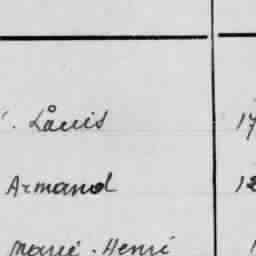 Louis 17
Armand 12
Marie-Henri 1